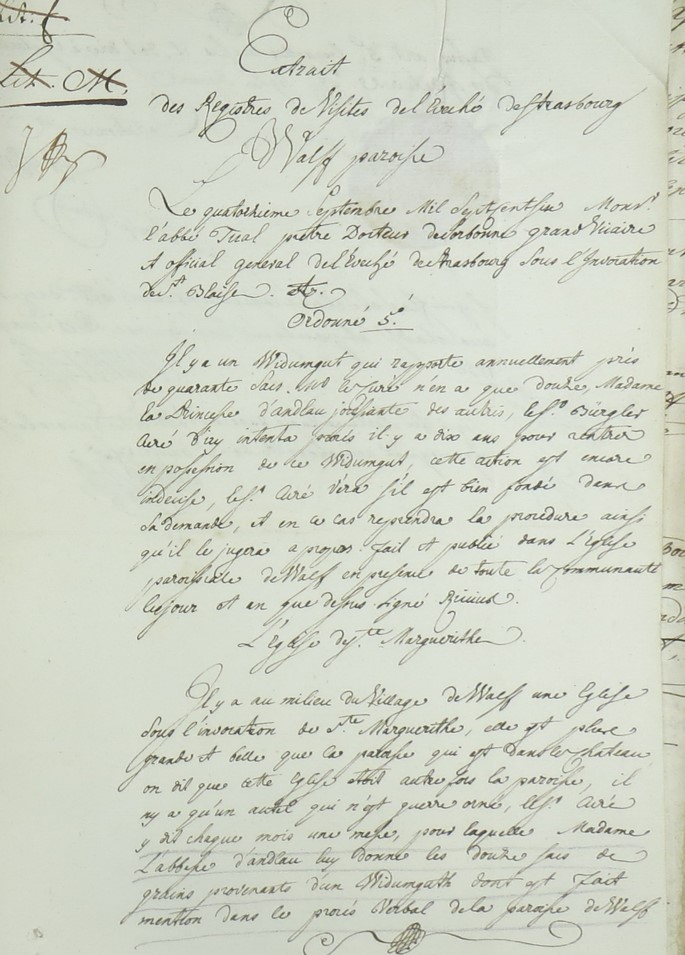 Lit. M.
Extrait
des Registres de Visites de l'Evêché de Strasbourg
Walff paroisse
Le quatorzieme Septembre Mil Septcent six Mons.r
l'abbé prêtre Docteur de Sorbonne grand Vicaire
et official general de l'Evêché de Strasbourg sous l'Invocation
de S.t Blaise.
Ordonné 5.º
Il y a un Widumgut qui rapporte annuellement près
de quarante sacs. le Curé n'en a que douze, Madame
la Princesse d'andlau jouissante des autres, le S.r Bürgler
Curé D'icy intenta procès il y a dix ans pour rentrer
en possession de ce Widumgut, cette action est encore
indecise, le S.r Curé Véra s'il est bien fondé dans
Sa demande, et en ce cas reprendra la procedure ainsi
qu'il le jugera a propos. fait et publié dans L'Eglise
paroissiale de Walf en presence de toute la Communauté
les jour et an que dessus. signé
L'Eglise de S.te Marguerithe
Il y a au milieu du Village de Walff une Eglise
sous l'invocation de S.te Marguerithe, elle est plus
grande et belle que la paroisse qui est dans le chateau
on dit que cette Eglise etoit autre fois la paroisse, il
ny a qu'un autel qui n'est guerre orné, le S.r Curé
y dit chaque mois une messe, pour laquelle Madame
L'abbesse d'andlau luy donne les douze sacs de
grains provenants d'un Widumguth dont est fait
mention dans le procés Verbal de la paroisse de Walff